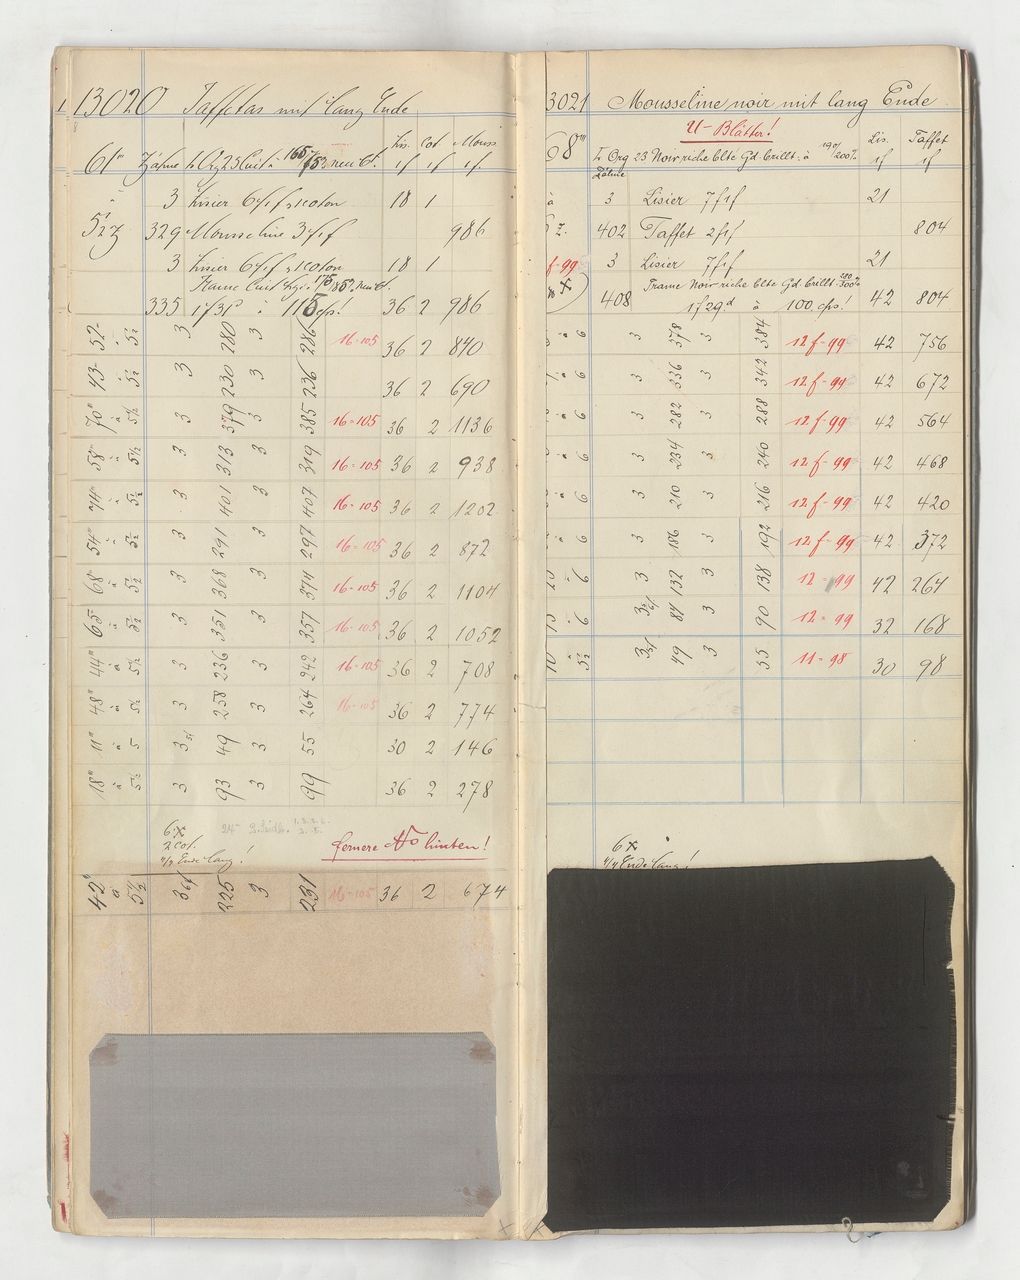 13020 Taffetas mit lang Ende
Lis. Cot Mouss
61"
1f 1f 1f.
3 Lisier 6f1f 1 coton 18 1
5½ Z
329 Mousseline 3f1f 986
3 Lisier 6f1f 1 coton 18 1
335 1f 31d à 115 cps! 36 2 986
52" à 5½ 3 280 3 286 16=105 36 2 840
43" à 5½ 3 230 3 236 36 2 690
70" à 5½ 3 379 3 385 16=105 36 2 1136
58" à 5½ 3 313 3 319 16=105 36 2 938
74" à 5½ 3 401 3 407 16=105 36 2 1202
54" à 5½ 3 291 3 297 16=105 36 2 872
68" à 5½ 3 368 3 374 16=105 36 2 1104
65" à 5½ 3 351 3 357 16=105 36 2 1052
44" à 5½ 3 236 3 242 16=105 36 2 708
48" à 5½ 3 258 3 264 16=105 36 2 774
11" à 5 3 49 3 55 30 2 146
18" à 5½ 3 93 3 99 36 2 278
6 x
2 cot.
Ende lang!
fernere No hinten!
42" à 5½ 3 225 3 231 16=105 36 2 674
3021 Mousseline noir mit lang Ende
U-Blätter!
68" Org 23 Noir riche blte Gd. brillt. à 190/200% Lis. Taffet
Zähne 1f 1f
à 3 Lisier 7f1f 21
Z. 402 Taffet 2f1f 804
f=99 3 Lisier 7f1f 21
Trame Noir riche blte Gd brillt. 280/300%
x 408 1f 29d à 100 cps! 42 804
à 6 3 378 3 384 12f=99 42 756
à 6 3 336 3 342 12f=99 42 672
à 6 3 282 3 288 12f=99 42 564
à 6 3 234 3 240 12f=99 42 468
à 6 3 210 3 216 12f=99 42 420
à 6 3 186 3 192 12f=99 42 372
à 6 3 132 3 138 12=99 42 264
à 6 84 3 90 12=99 32 168
à 5½ 49 3 55 11=98 30 98
6 x
Ende lang!